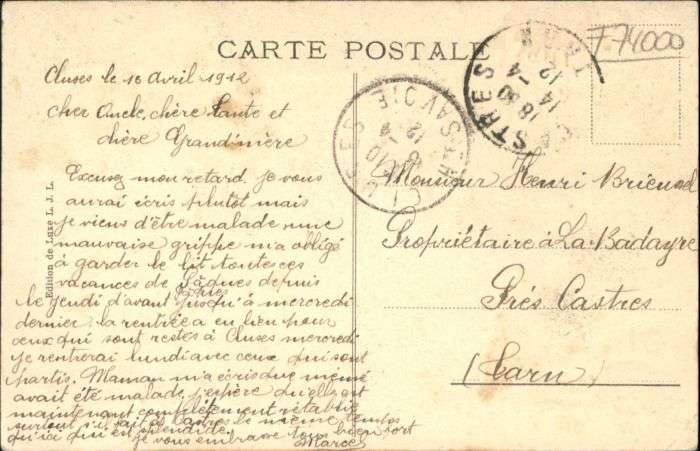 CARTE POSTALE
F74000
Cluses le 10 avril 1912
cher Oncle, chère Tante et
chère Grand'mère
Excusez mon retard. je vous
aurai écris plutot mais
je viens d'être malade, une
mauvaise grippe m'a obligé
à garder le lit toutes ces
vacances de Pâques depuis
le jeudi d'avant jusqu'à mercredi
dernier. la rentrée a eu lieu pour
ceux qui sont restés à Cluses mercredi
je rentrerai lundi avec ceux qui sont
partis. Maman m'a écris que mémé
avait été malade, j'espère qu'elle est
maintenant complètement rétablie
surtout s'il fait à Castres le même temps
qu'ici qui est splendide.
je vous embrasse tous bien fort
Marcel
Edition de Luxe L. J. L.
CLUSES
HTE SAVOIE
12
CASTRES
TARN
18 30
14
12-4
Monsieur Henri Brieussel
Propriétaire à La Badayre
Prés Castres
(Tarn)